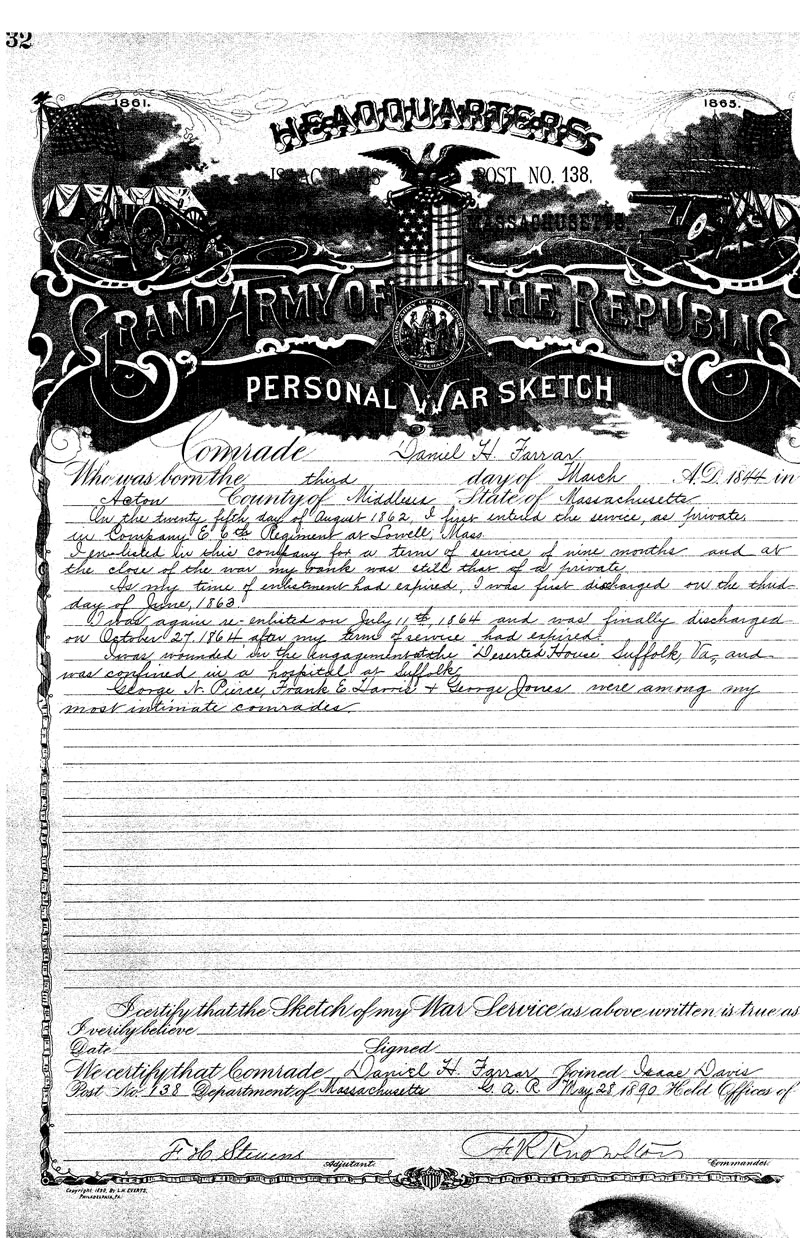 32
1861.
1865.
HEADQUARTERS
ISAAC DAVIS POST NO. 138,
MASSACHUSETTS
GRAND ARMY OF THE REPUBLIC
PERSONAL WAR SKETCH
Comrade Daniel H. Farrar
Who was born the third day of March A.D. 1844 in
Acton County of Middlesex State of Massachusetts
On the twenty fifth day of August 1862, I first entered the service, as private,
in Company E. 6th Regiment at Lowell, Mass.
I enlisted in this company for a term of service of nine months and at
the close of the war my rank was still that of a private.
As my time of enlistment had expired, I was first discharged on the third
day of June, 1863
I was again re-enlisted on July 11th, 1864 and was finally discharged
on October 27, 1864 after my term of service had expired.
I was wounded in the engagement at the "Deserted House" Suffolk, Va, and
was confined in a hospital at Suffolk.
George N. Pierce, Frank E. Harris + George Jones were among my
most intimate comrades.
I certify that the Sketch of my War Service as above written is true as
I verily believe
Date Signed
We certify that Comrade Daniel H. Farrar Joined Isaac Davis
Post No. 138 Department of Massachusetts G. A. R. May 28, 1890 Held Offices of
F H Stevens
Adjutant.
Knowlton
Commander.
Copyright 1890, By L.H. EVERTS,
PHILADELPHIA, PA.